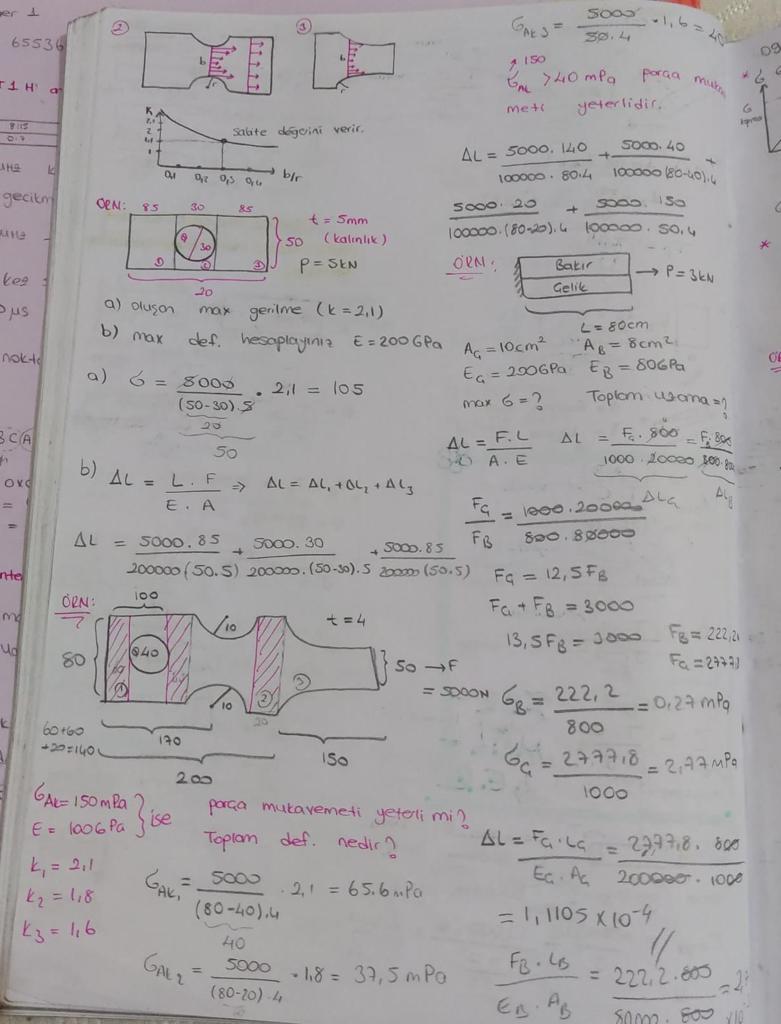 er 1
65536
T1 H
8115
0.7
gecikm
µs
nokta
②
③
b
r
b
r
K
2,1
2
1
0,1 0,2 0,3 0,4 b/r
sabite değerini verir.
ÖRN: 85 30 85
30
① ② ③
20
50
t = 5mm
(kalınlık)
P = 5kN
a) oluşan max gerilme (k = 2,1)
b) max def. hesaplayınız E = 200 GPa
a) σ = 5000 / (50-30).5 . 2,1 = 105
20
50
b) ΔL = L . F / E . A ⇒ ΔL = ΔL1 + ΔL2 + ΔL3
ΔL = 5000.85 / 200000(50.5) + 5000.30 / 200000.(50-30).5 + 5000.85 / 200000(50.5)
ÖRN:
100
80
Φ40
10
10
t = 4
① ② ③
20
50 → F
= 5000N
60+60
+20=140
170
150
200
σAK = 150 mPa
E = 100 GPa
} ise
parça mukavemeti yeterli mi?
Toplam def. nedir?
k1 = 2,1
k2 = 1,8
k3 = 1,6
σAK1 = 5000 / (80-40).4 . 2,1 = 65.6 mPa
40
σAK2 = 5000 / (80-20).4 . 1,8 = 37,5 mPa
σAK3 = 5000 / 50.4 . 1,6 = 40
150
σAK > 40 mPa parça muka
meti yeterlidir.
ΔL = 5000.140 / 100000.80.4 + 5000.40 / 100000(80-40).4 +
5000.20 / 100000.(80-20).4 + 5000.150 / 100000.50.4
ÖRN:
Bakır
Çelik
→ P = 3kN
L = 80cm
AÇ = 10cm² AB = 8cm²
EÇ = 200GPa EB = 80GPa
max σ = ? Toplam uzama = ?
ΔL = F.L / A.E ΔL = FÇ.800 / 1000.20000 = FB.800 / 800.800
ΔLÇ ΔLB
FÇ / FB = 1000.200000 / 800.80000
FÇ = 12,5 FB
FÇ + FB = 3000
13,5 FB = 3000 FB = 222,2
FÇ = 2777,
σB = 222,2 / 800 = 0,27 mPa
σÇ = 2777,8 / 1000 = 2,77 mPa
ΔL = FÇ.LÇ / EÇ.AÇ = 2777,8.800 / 200000.1000
= 1,1105 x 10⁻⁴
FB.LB / EB.AB = 222,2.800 / 80000.800 = 2